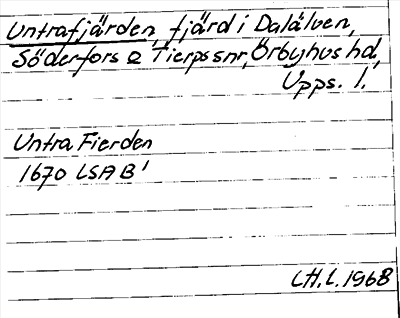 Untrafjärden, fjärd i Dalälven,
Söderfors o Tierps snr, Örbyhus hd,
Upps. l.
Untra Fierden
1670 LSA B¹
LH. L. 1968